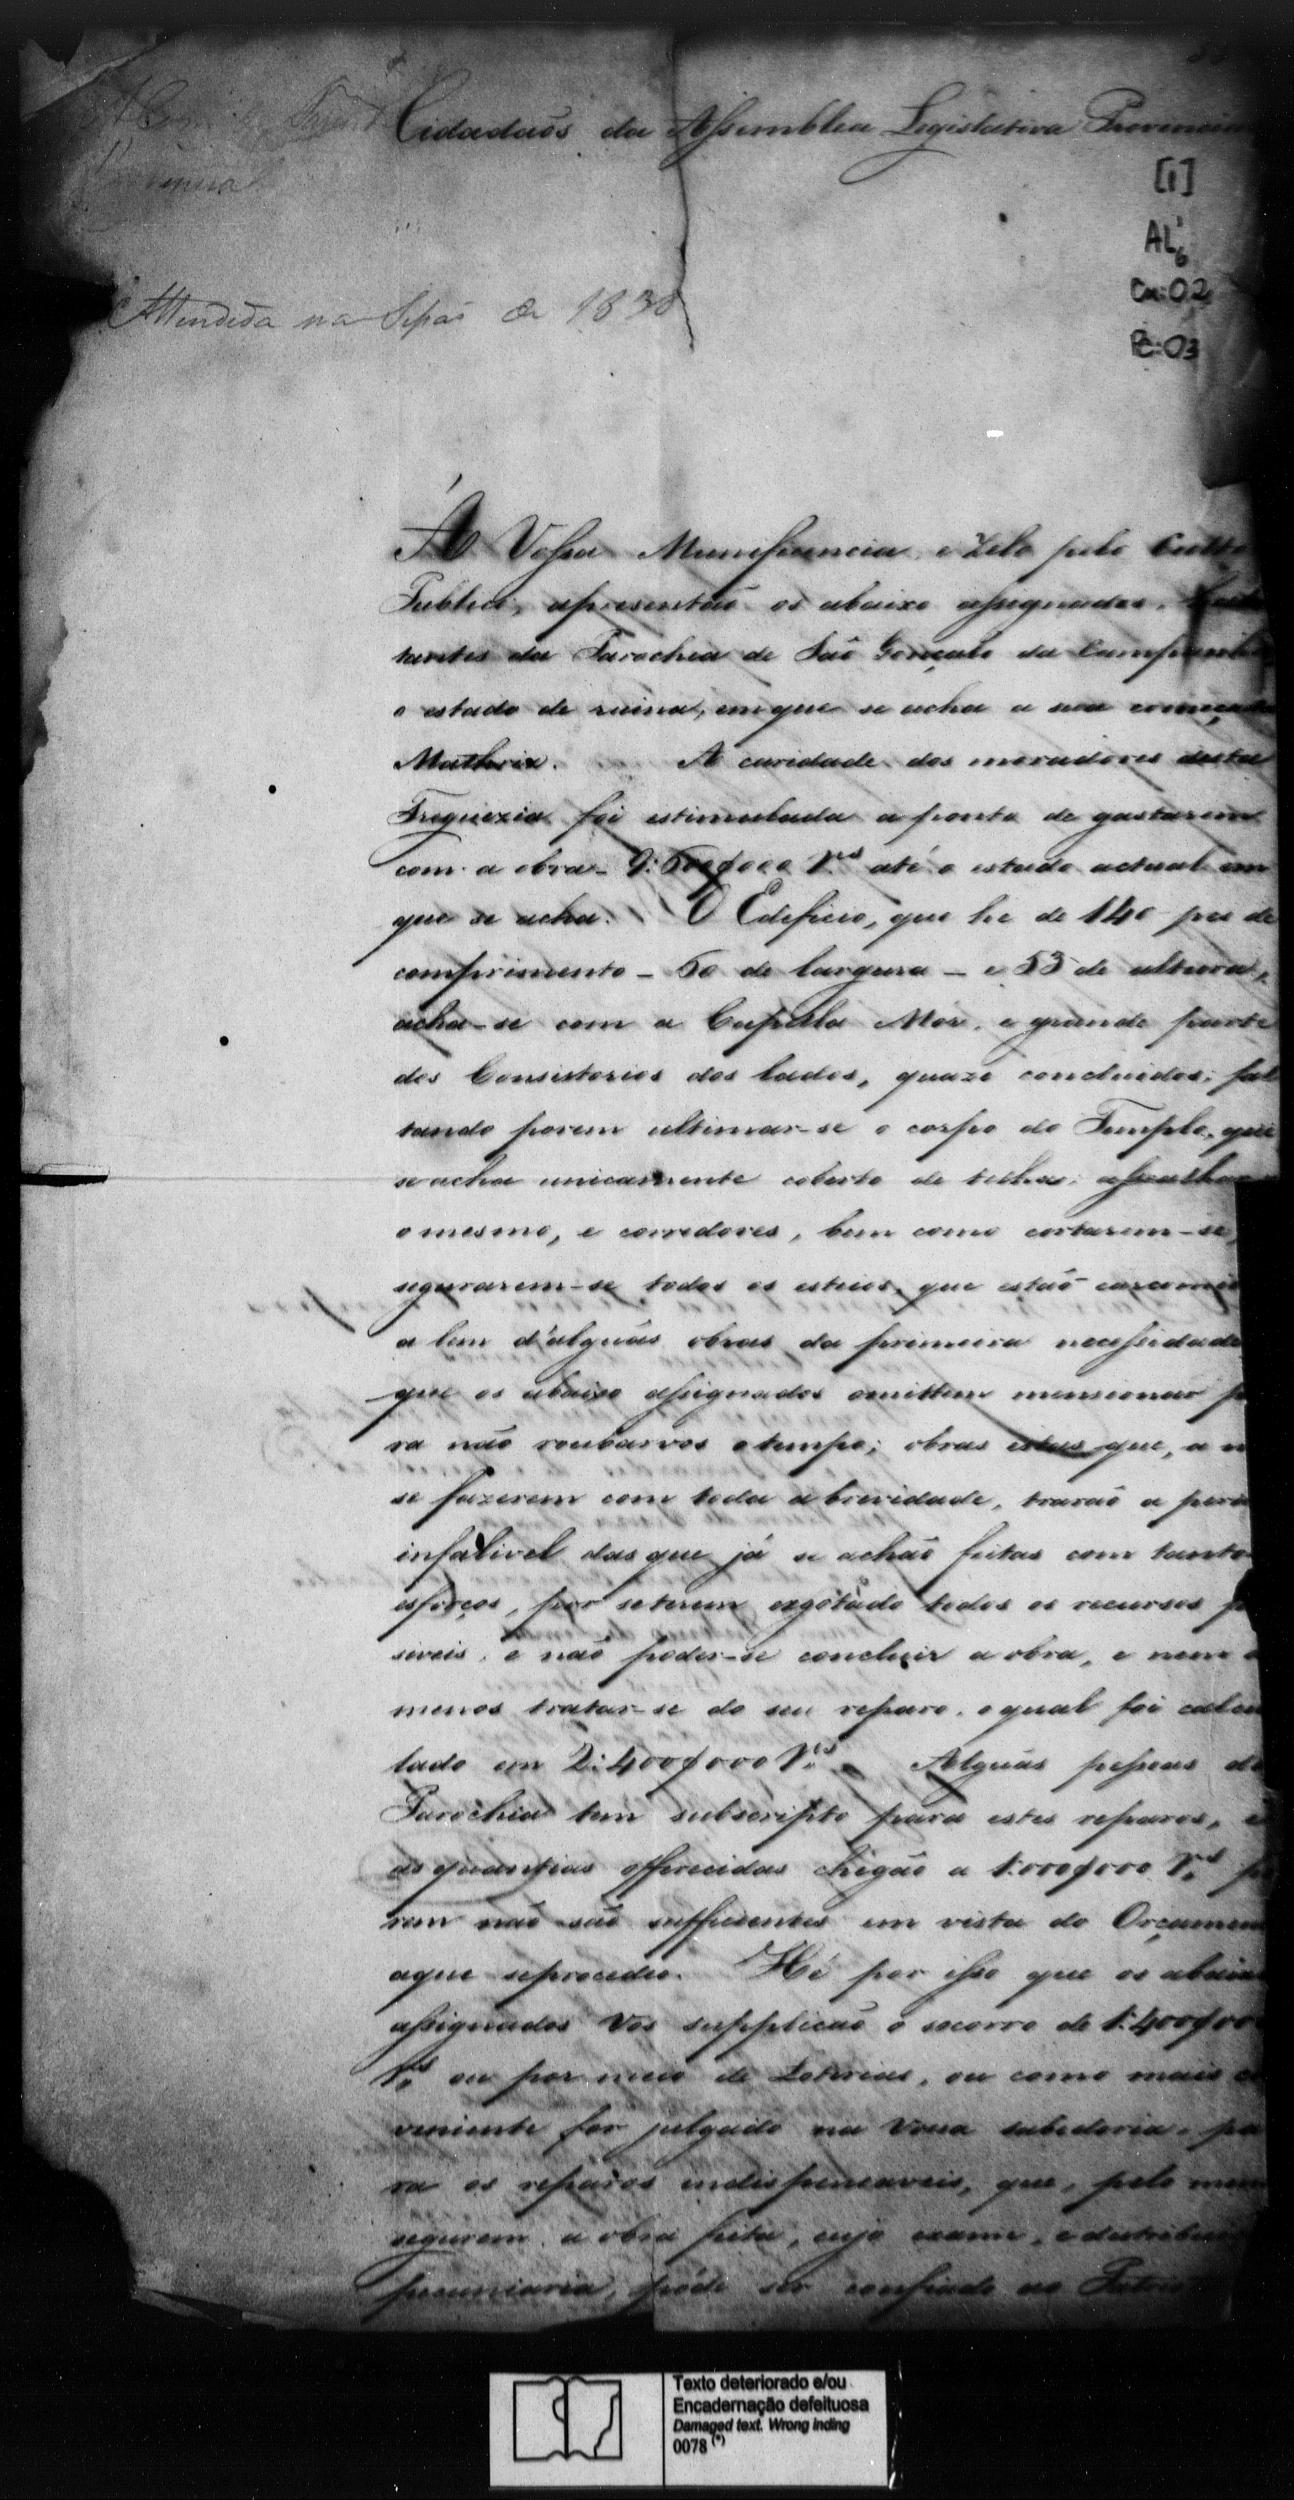 Cidadaõs da Assemblea Legislativa Provincia
[1]
AL¹6
Cx:02
Pc:03
Attendida na Sessaõ de 1838
Á Vossa Munificencia, e Zelo pelo Culto
Publico, apresentaõ os abaixo assignados,
tantes da Parochia de Saõ Gonçalo da Campanha
o estado de ruina, em que se acha a sua começada
Mathriz. A caridade dos moradores desta
Freguezia foi estimulada a ponto de gastarem
com a obra - 9:600$000 r.s até o estado actual em
que se acha. O Edeficio, que he de 140 pes de
comprimento - 60 de largura - e 53 de altura,
acha-se com a Capella Mór, e grande parte
dos Consistorios dos lados, quaze concluidos; fal
tando porem ultimar-se o corpo do Templo, que
se acha unicamente coberto de telha; assoalhar
o mesmo, e corredores, bem como cortarem-se,
segurarem-se todos os esteios, que estaõ carcomi
a lem d'alguãs obras da primeira necessidade
que os abaixo assignados omittem mencionar p
ra naõ roubarvos o tempo; obras estas que, a n
se fazerem com toda a brevidade, traraõ a perd
infalivel das que já se achaõ feitas com tanto
esforços, por se terem exgotado todos os recursos p
siveis, e naõ poder-se concluir a obra, e nem a
menos tratar-se do seu reparo, o qual foi calcu
lado em 2:400$000 r.s Alguãs pessoas d
Parochia tem subscripto para estes reparos, e
as quantias offerecidas chegaõ a 1:000$000 r.s p
rem naõ saõ sufficientes em vista do Orçamen
a que se procedeo. Hé por isso que os abaixo
assignados Vos supplicaõ o socorro de 1:400$00
r.s ou por meio de Loterias, ou como mais c
veniente for julgado na Vossa sabedoria, pa
ra os reparos indispensaveis, que, pelo men
segurem a obra feita, cujo exame, e distribui
pecuniaria, póde ser confiado ao
Texto deteriorado e/ou
Encadernação defeituosa
Damaged text. Wrong inding
0078 (*)